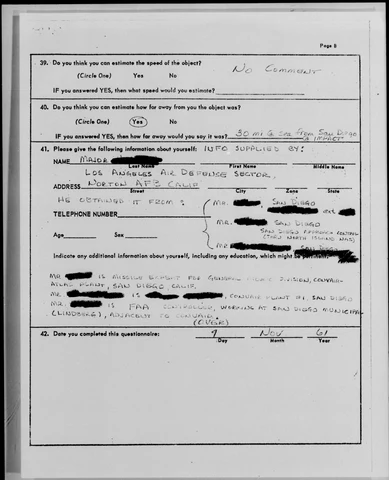 Page 8
39. Do you think you can estimate the speed of the object?
(Circle One) Yes No
No Comment
IF you answered YES, then what speed would you estimate?
40. Do you think you can estimate how far away from you the object was?
(Circle One) Yes No
IF you answered YES, then how far away would you say it was? 30 mi @ sea from San Diego @ impact
41. Please give the following information about yourself: INFO SUPPLIED BY:
NAME MAJOR
Last Name First Name Middle Name
LOS ANGELES AIR DEFENSE SECTOR
ADDRESS NORTON AFB CALIF
Street City Zone State
HE OBTAINED IT FROM: MR. SAN DIEGO
TELEPHONE NUMBER and
MR. SAN DIEGO
SAN DIEGO APPROACH CONTROL
Age Sex (THRU NORTH ISLAND NAS)
MR SAN DIEGO
Indicate any additional information about yourself, including any education, which might be
MR IS MISSILE EXPERT FOR GENERAL DIVISION, CONVAIR
ATLAS PLANT, SAN DIEGO CALIF.
MR. IS CONVAIR PLANT AT SAN DIEGO
MR. IS FAA CONTROLLER, WORKING AT SAN DIEGO MUNICIPAL
(LINDBERG), ADJACENT TO CONVAIR.
(OVER)
42. Date you completed this questionnaire: 9 NOV 61
Day Month Year